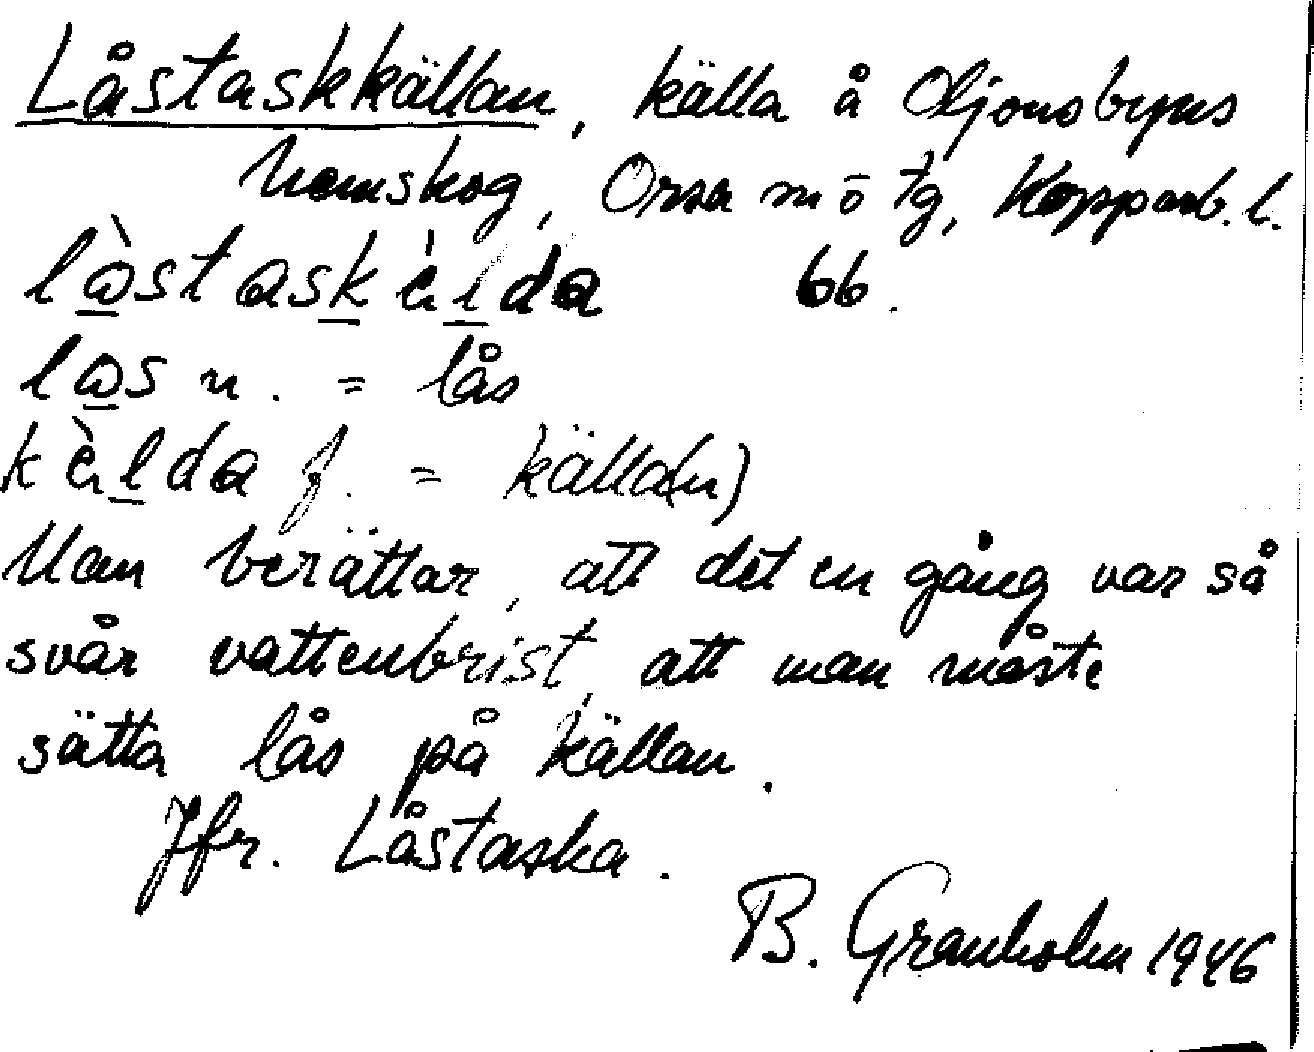 Låstaskkällan, källa å Oljonsbyns
hemskog, Orsa sn o tg, Kopparb. l.
lò̱stask̠èḻda 66.
lo̱s n. = lås
kèḻda f. = källa(n)
Man berättar, att det en gång var så
svår vattenbrist, att man måste
sätta lås på källan.
Jfr. Låstaska.
B. Granholm 1946